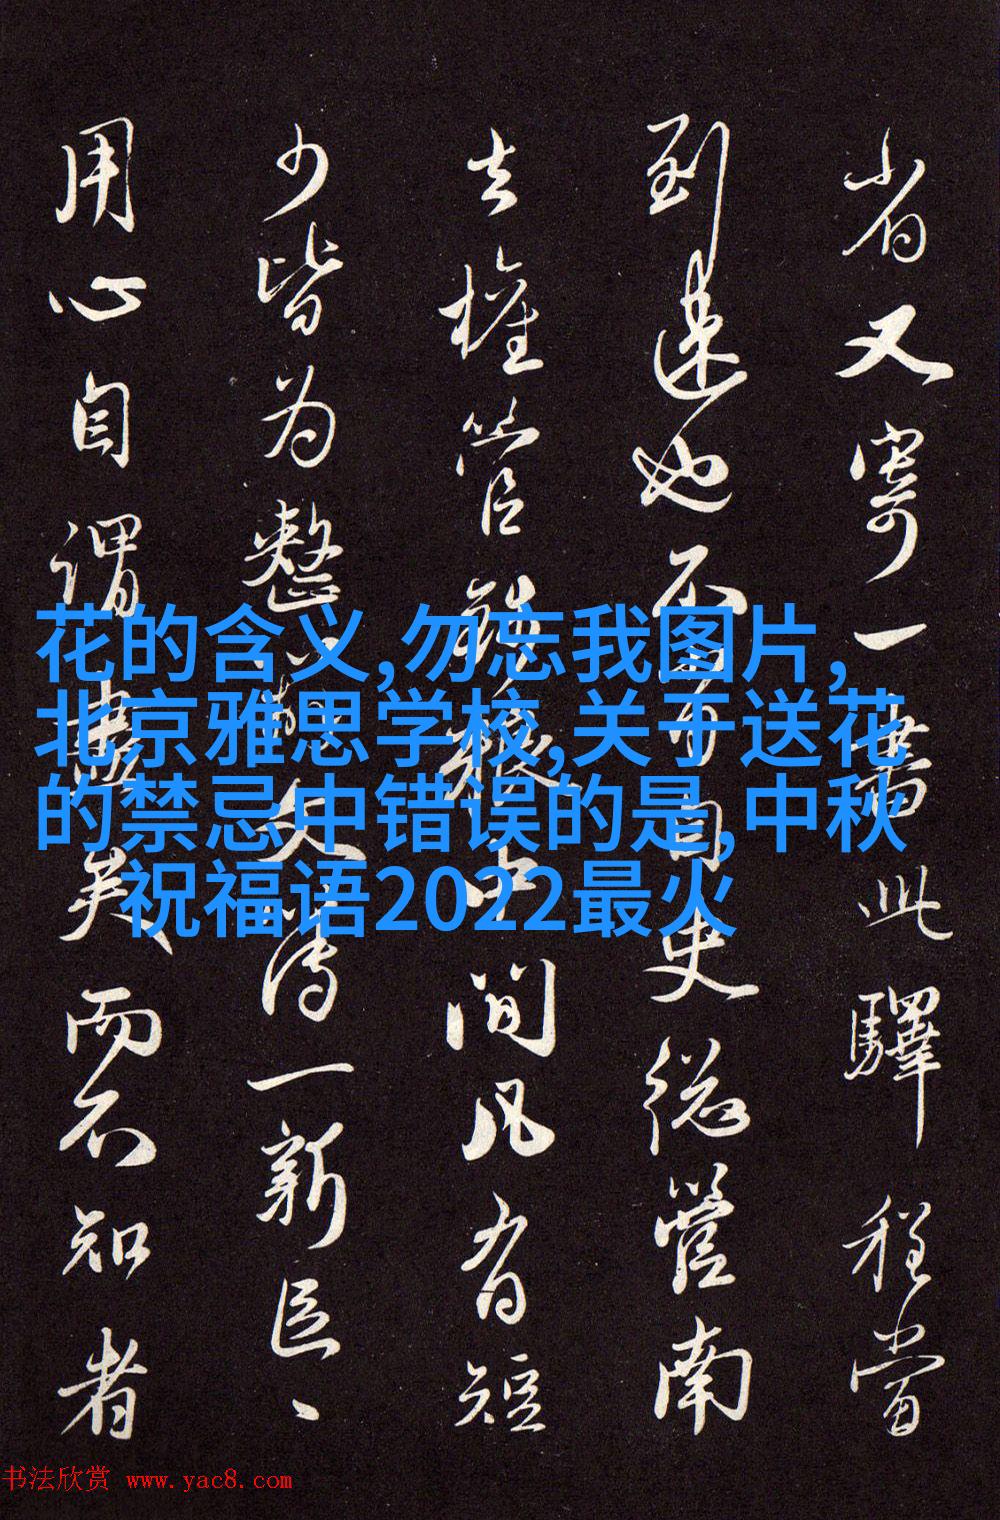 省又寄一書此驛程當
到速也不可自史總管南
去權管錢糧上間凡有短
少皆为整文一新
用心自謂盡矣而不知者
花的含义,勿忘我图片,
北京雅思学校,关于送花
的禁忌中错误的是,中秋
祝福语2022最火
书法欣赏 www.yac8.com